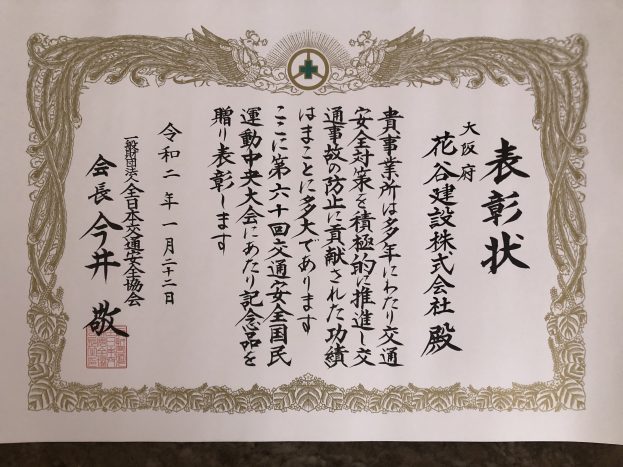 表彰状
大阪府
花谷建設株式会社 殿
貴事業所は多年にわたり交通
安全対策を積極的に推進し交
通事故の防止に貢献された功績
はまことに多大であります
ここに第六十回交通安全国民
運動中央大会にあたり記念品を
贈り表彰します
令和二年一月二十二日
一般財団法人全日本交通安全協会
会長 今井 敬